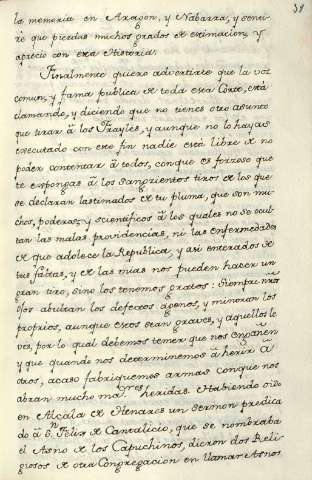 39
la memoria en Aragon, y Nabarra, y senti-
re que pierdas muchos grados de estimacion, y
aprecio con esta Historia.
Finalmente quiero advertirte que la voz
comun, y fama publica de toda esta Corte, està
clamando, y diciendo que no tienes otro asunto
que tirar à los Frayles, y aunque no lo hayas
executado con este fin nadie està libre de no
poder contentar à todos, conque es forzoso que
te expongas à los sangrientos tiros de los que
se declaran lastimados de tu pluma, que son mu-
chos, poderos.s y scientificos à los quales no se ocul-
tan las malas providencias, ni las enfermedades
de que adolece la Republica, y asi enterados de
tus faltas, y de las mias nos pueden hacer un
gran tiro, sino los tenemos gratos: Siempre nros
ojos abultan los defectos agenos, y minoran los
proprios, aunque estos sean graves, y aquellos le-
ves, por lo qual debemos temer que nos engañen
y que quando nos determinemos à herir à
otros, acaso fabriquemos armas conque nos
abran mucho mayres heridas. Habiendo oido
en Alcalà de Henares un sermon predica
do à Sn. Felix de Cantalicio, que se nombraba
el Asno de los Capuchinos, dieron dos Reli-
giosos de otra Congregacion en llamar Asnos